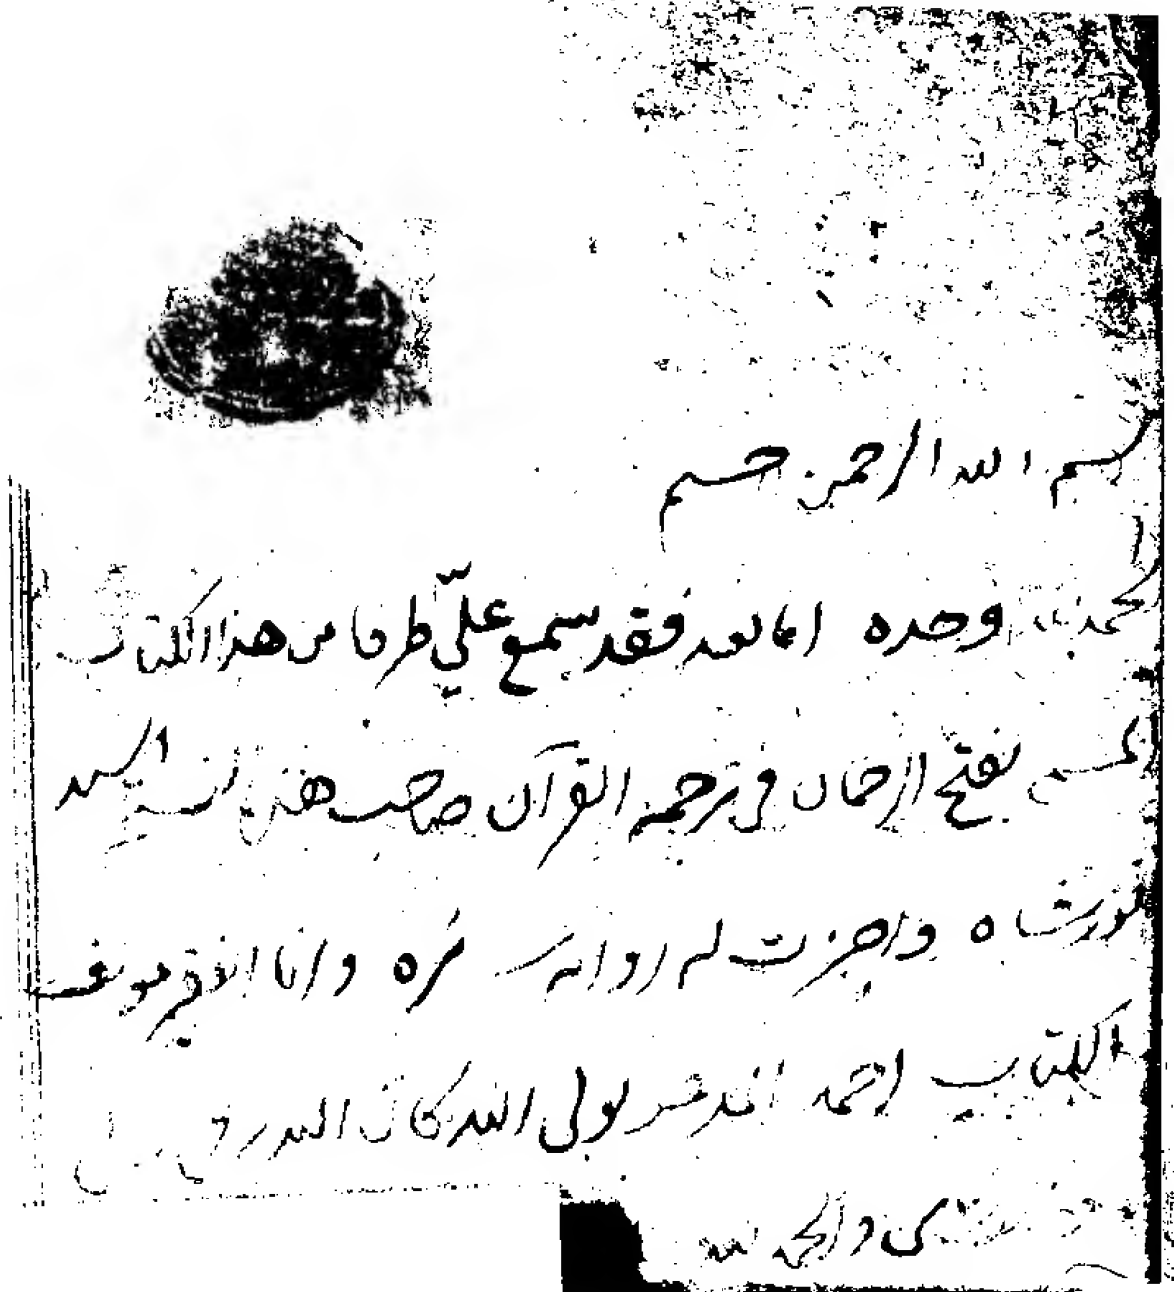 بسم الله الرحمن حسم
الحمد لله وحده اما بعد فقد سمع عليّ طرفا من هذا الكتاب
المسمى بفتح الرحمان في ترجمة القرآن صاحب هذه النسخة السيد
نورشاه واجزت له روايته وانا الفقير مولف
الكتاب احمد المدعو بولي الله كان الله
والحمد لله